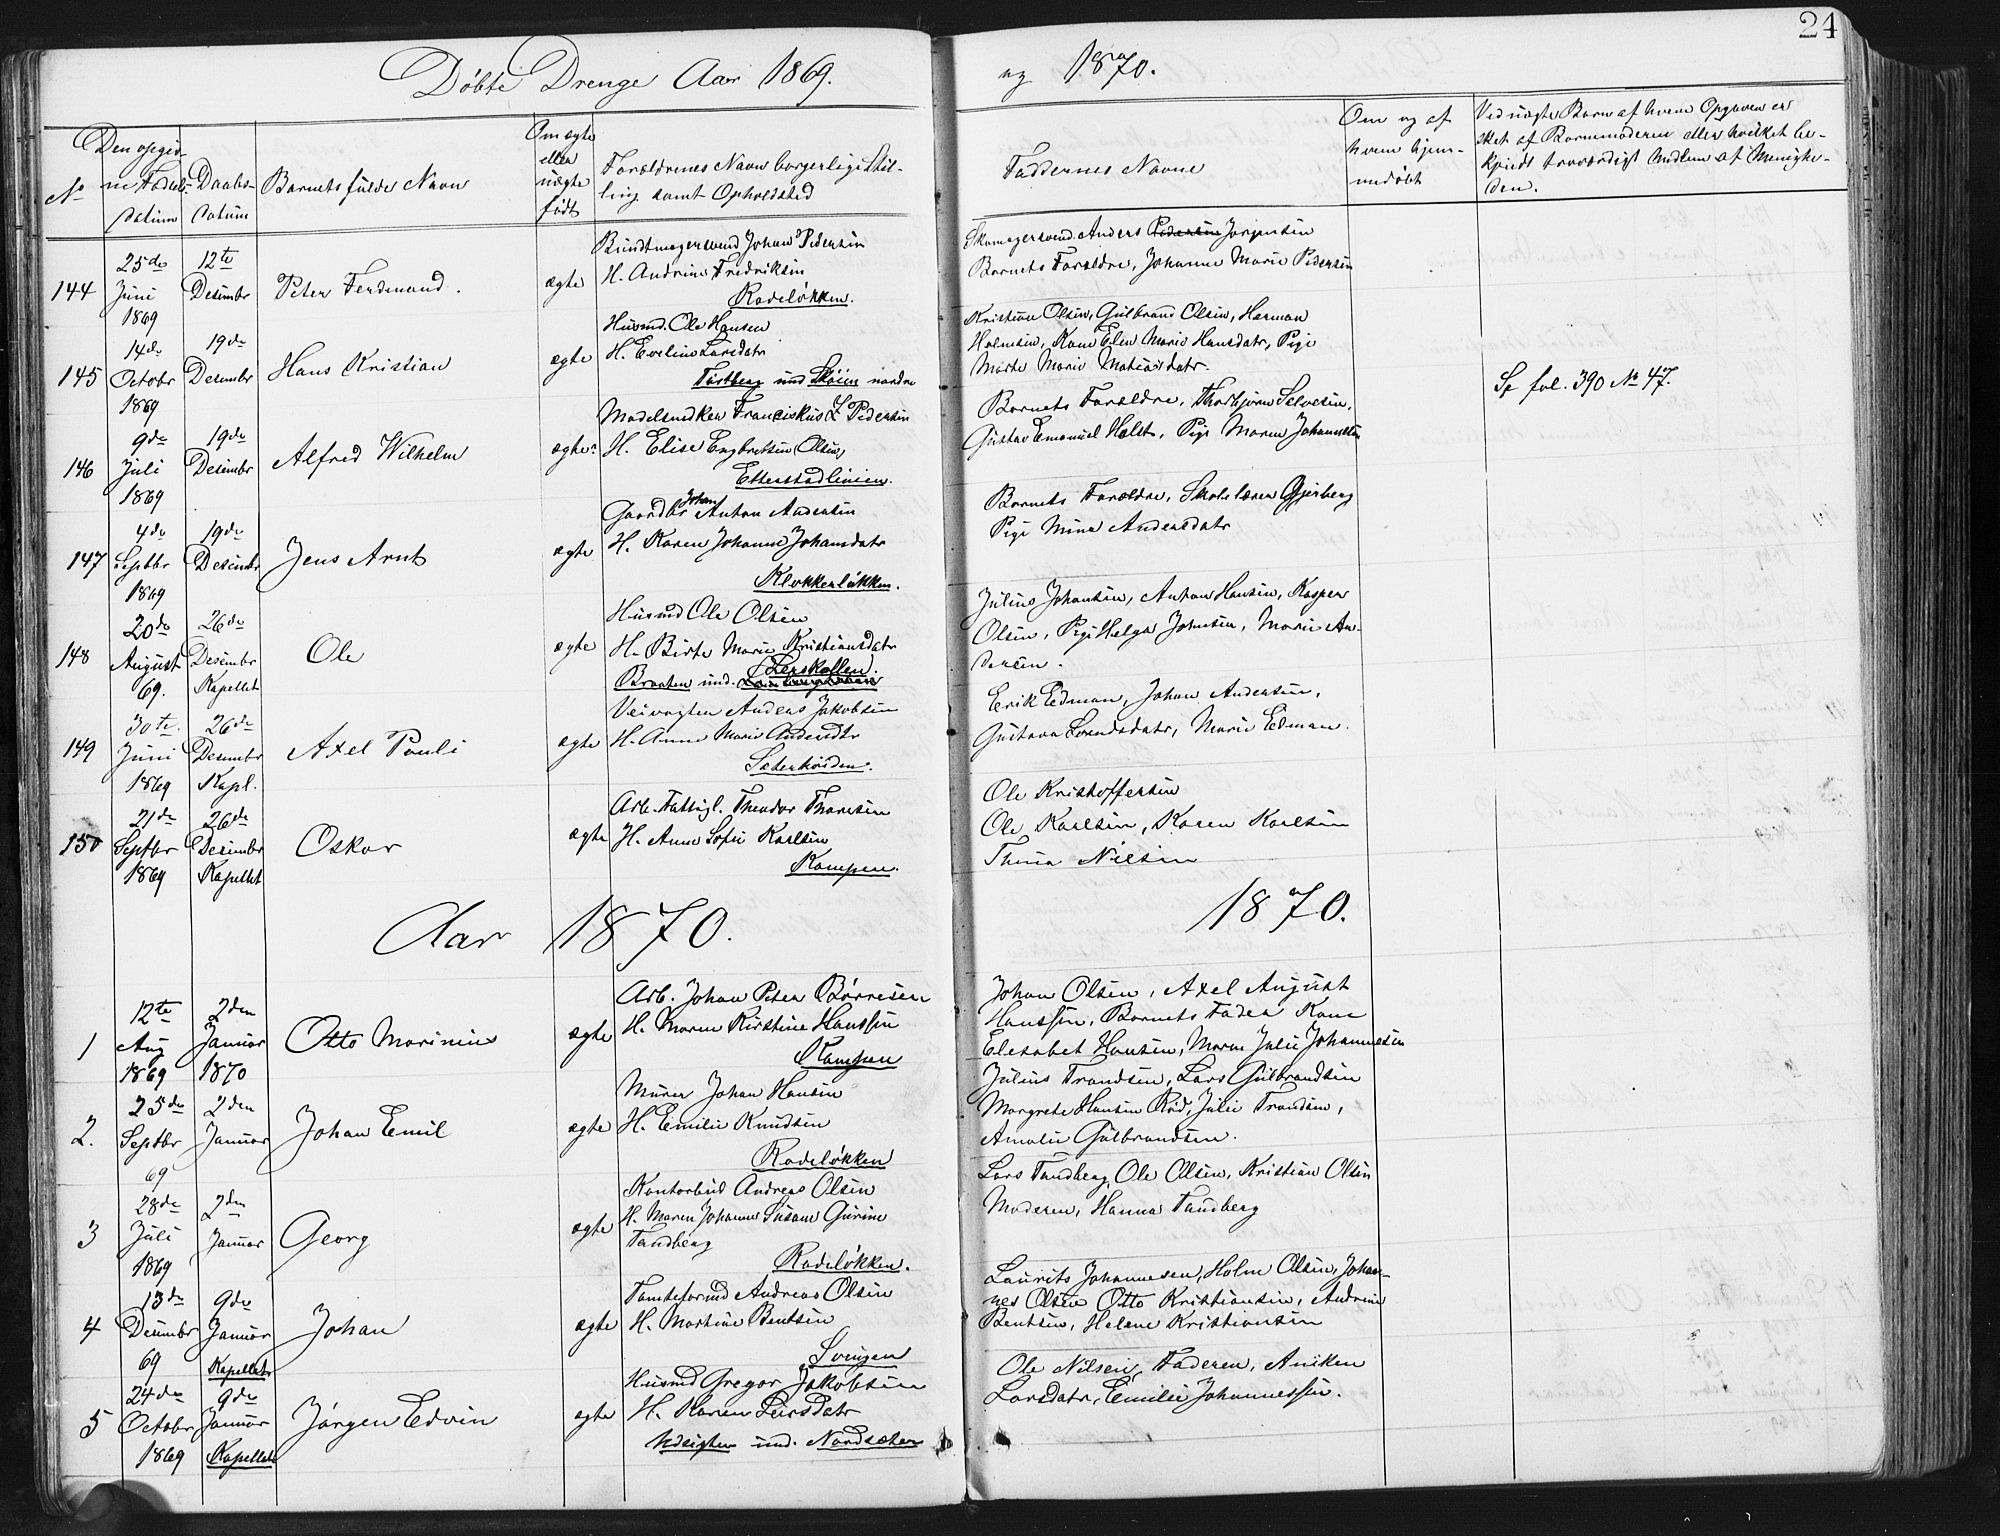 24
Døbte Drenge Aar 1869.
og 1870.
No
Den opgiv-
ne Fødsels-
datum
Daabs-
datum
Barnets fulde Navn
Om ægte
eller
uægte
født
Forældrenes Navn borgerlige Stil-
ling samt Opholdsted
Faddernes Navne
Om og af
hvem hjem-
medøbt
Ved uægte Børn af hvem Opgaven er
sket af Barnemoderen eller hvilket be-
troværdigt Medlem af Menighe-
den.
144
25de Juni 1869
12te Desembr
Peter Ferdinand.
ægte
Bundtmagersvend Johan Pedersen
H. Andrine Fredriksen
Rodeløkken.
Skomagersvend. Anders Pedersen Jørgensen
Barnets Forældre, Johanne Marie Pedersen
145
14de Octobr 1869
19de Desembr
Hans Kristian
ægte
Husmd. Ole Hansen
H. Eveline Larsdatr
Tørtberg und Skøien nordre
Kristian Olsen, Gulbrand Olsen, Herman
Holmsen, Kone Elen Marie Hansdatr, Pige
Marte Marie Matiasdatr.
Se fol. 390 No 47.
146
9de Juli 1869
19de Desembr
Alfred Wilhelm
ægte
Madelsnedker Franciskus L Pedersen
H. Elise Engbretsen (Olsen)
Etterstadlinien.
Barnets Forældre, Thorbjørn Selvesen,
Gustav Emanuel Holst, Pige Maren Johannesen
147
4de Septbr 1869
19de Desembr
Jens Arnt
ægte
Gaardbr Johan Anton Andersen
H. Karen Johanne Johansdatr
Klokkerløkken.
Barnets Forældre, Skolelærer Gjerberg
Pige Mina Andersdatr
148
20de August 69.
26de Desembr Kapellet
Ole
ægte
Husmd Ole Olsen
H. Birte Marie Kristiansdatr
Braaten und. Leerskallen.
Julius Johansen, Anton Hansen, Kasper
Olsen, Pige Helga Johnsen, Marie An-
dersen.
149
30te Juni 1869
26de Desembr Kapl.
Axel Pauli
ægte
Veivogter Anders Jakobsen
H. Anne Marie Andersdtr
Seterhøiden.
Erik Edman, Johan Andersen,
Gustava Lorendsdatr, Marie Edman.
150
21de Septbr 1869
26de Desembr Kapellet
Oskar
ægte
Arb. Fattigl. Theodor Thoresen
H. Anne Sofie Karlsen
Kampen.
Ole Kristoffersen
Ole Karlsen, Karen Karlsen
Thina Nielsen
Aar 1870.
1870.
1
12te Aug 1869
2den Januar 1870
Otto Marinius
ægte
Arb. Johan Peter Børresen
H. Maren Kirstine Hanssen
Kampen
Johan Olsen, Axel August
Hanssen, Barnets Fader Kone
Elesabet Hansen, Maren Julie Johannesen
2.
25de Septbr 69
2den Januar
Johan Emil
ægte
Murer Johan Hansen
H. Emilie Knudsen
Rodeløkken
Julius Trandsen, Lars Gulbrandsen
Margrete Hansen Rød, Julie Trandsen,
Amalie Gulbrandsen.
3
28de Juli 1869
2den Januar
Georg
ægte
Kontorbud Andreas Olsen
H. Maren Johanne Susane Gurine
Tandberg
Rodeløkken.
Lars Tandberg, Ole Olsen, Kristian Olsen
Moderen, Hanna Tandberg
4
13de Desembr 69
9de Januar Kapellet
Johan
ægte
Tomteformd Andreas Olsen
H. Martine Bentsen
Svingen
Laurits Johannesen, Holm Olsen, Johan-
nes Olsen Otto Kristiansen, Andrine
Bentsen, Helene Kristiansen
5
24de Octobr 1869
9de Januar Kapellet
Jørgen Edvin
ægte
Husmd Gregor Jakobsen
H. Karen Larsdatr
Udsigten und. Nordsæter
Ole Nilsen, Faderen, Aniken
Larsdatr, Emilie Johannessen.